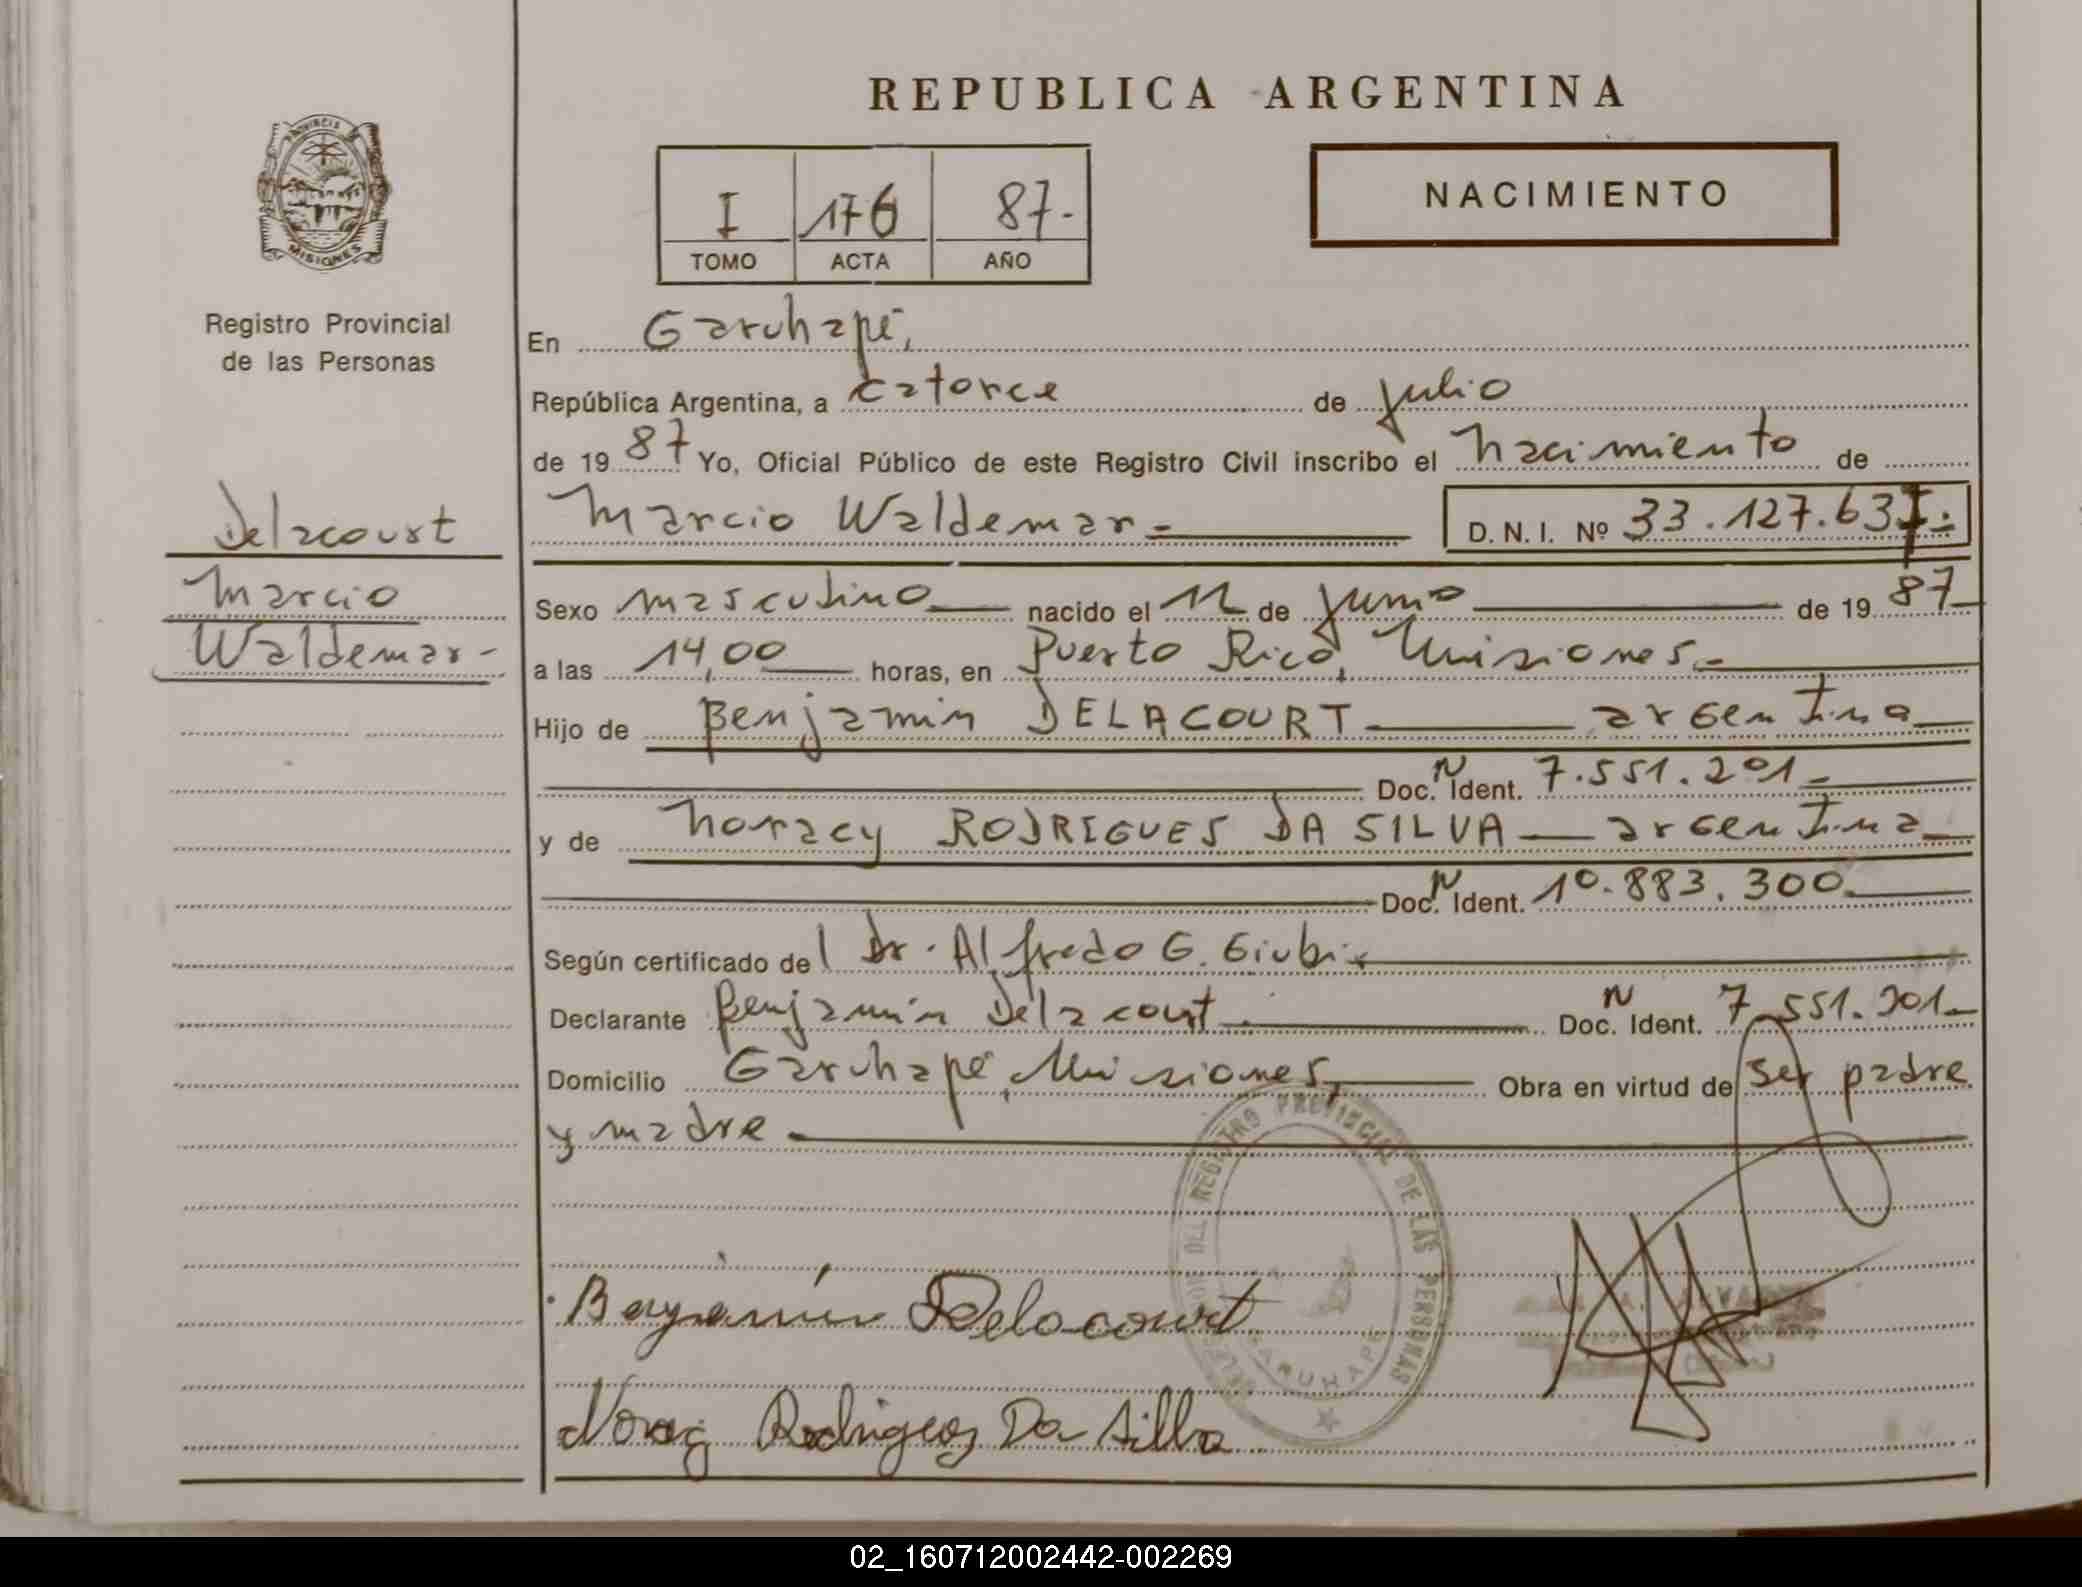 REPUBLICA ARGENTINA
PROVINCIA
MISIONES
Registro Provincial
de las Personas
I 176 87.-
TOMO ACTA AÑO
NACIMIENTO
En Garuhapé,
República Argentina, a catorce de julio
de 19 87 Yo, Oficial Público de este Registro Civil inscribo el nacimiento de
Marcio Waldemar.- D. N. I. Nº 33.127.637.-
Delacourt
Marcio
Waldemar-
Sexo masculino nacido el 12 de junio de 19 87
a las 14,00 horas, en Puerto Rico, Misiones.-
Hijo de Benjamin DELACOURT argentina
Doc. N Ident. 7.551.201-
y de Noracy RODRIGUES DA SILVA argentina
Doc. N Ident. 10.883.300.
Según certificado del Dr. Alfredo G. Giubi.
Declarante Benjamin Delacourt. Doc. N Ident. 7.551.201-
Domicilio Garuhapé, Misiones, Obra en virtud de ser padre
y madre.
DEL REGISTRO PROVINCIAL DE LAS PERSONAS
GARUHAPE
Benjamín Delacourt
Noracy Rodrigues Da Silva
02_160712002442-002269